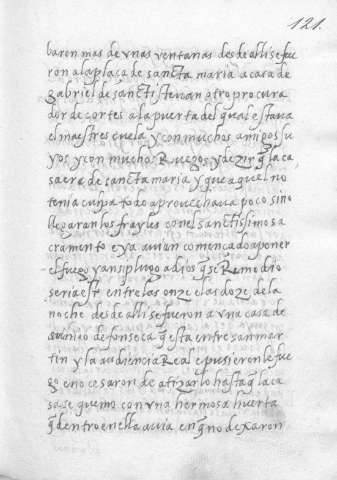 121.
baron mas de vnas ventanas desde alli se fue
ron a la plaça de sancta maria a casa de
gabriel de sanctistevan otro procura
dor de cortes a la puerta del qual estava
el maestrescuela y con muchos amigos su
yos y con muchos Ruegos y dezir q̃ la ca
sa era de sancta maria y que aquel no
tenia culpa todo aprovechava poco sino
llegaran los frayles con el sanctissimo sa
cramento e ya avian començado a poner
el fuego y ansi plugo a dios q̃ se Remedio
seria esto entre las onze e las doze de la
noche desde alli se fueron a vna casa de
de fonseca q̃ esta entre san mar
tin y la audiencia Real e pusieron le fue
go e no cesaron de atizarlo hasta q̃ la ca
sa se quemo con vna hermosa huerta
q̃ dentro en ella avia en q̃ no dexaron